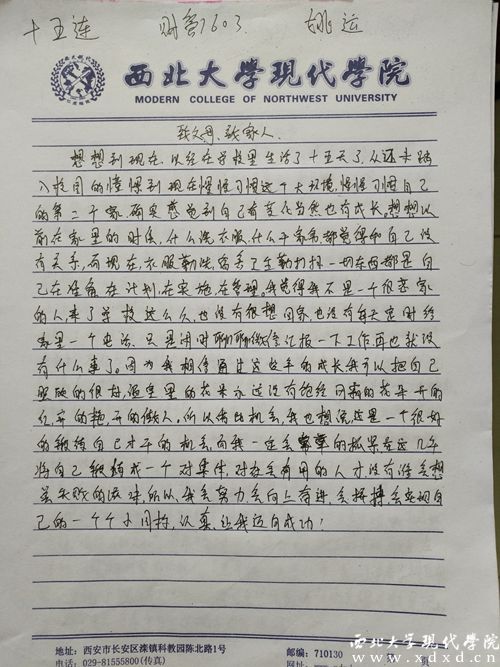 十五连 财管1603 姚运
西北大学现代学院
MODERN COLLEGE OF NORTHWEST UNIVERSITY
致父母、致家人
想想到现在,以经在学校里生活了十五天了,从还未踏
入校园的憧憬到现在慢慢习惯这个大环境,慢慢习惯自己
的第二个家确实感觉到自己有变化当然也有成长,想想以
前在家里的时候,什么洗衣服,什么干家务都觉得和自己没
有关系,而现在,衣服勤洗,宿舍卫生勤打扫一切东西都是自
己在准备在计划,在实施,在管理。我觉得我不是一个很恋家
的人,来了学校这么久,也没有很想回家,也没有每天定时给
家里一个电话,只是闲时聊聊微信汇报一下工作再也就没
有什么事了。因为我相信通过这些年的成长我可以把自己
照顾的很好,温室里的花朵永远没有饱经风霜的花朵开的
久,开的艳,开的傲人。所以借此机会,我也想说,这是一个很好
的锻炼自己才干的机会,而我一定会 的抓紧在这几年
将自己锻炼成一个对集体,对社会有用的人才没有谁会想
失败的 所以,我会努力会向上奋进,会拼搏会实现自
己的一个个小目标,认真,让我迈向成功!
地址:西安市长安区滦镇科教园陈北路1号 邮编:710130
电话:029-81555800(传真)
西北大学现代学院
www.xdxd.cn